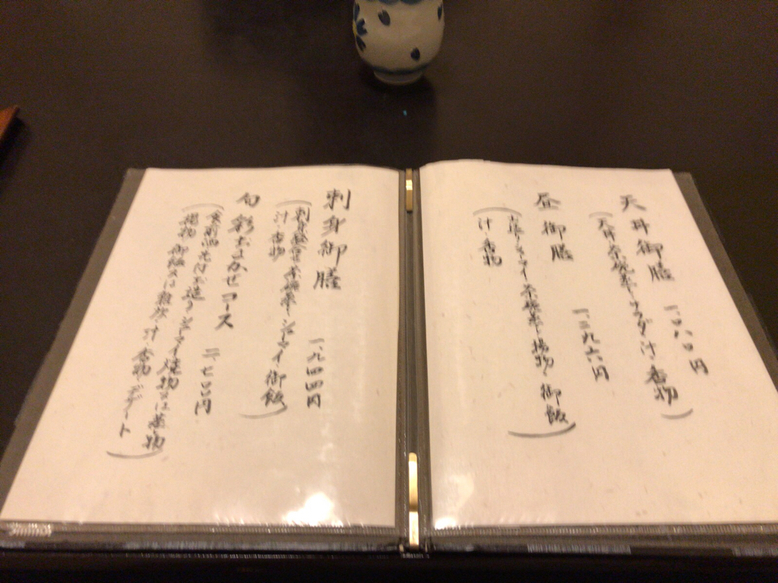 天丼御膳 一、〇八〇円
(天丼・茶碗蒸し・サラダ・汁・香物)
昼御膳 一、二九六円
シューマイ・茶碗蒸し・揚物・御飯
汁・香物)
刺身御膳 一、九四四円
(刺身盛合せ・茶碗蒸し・シューマイ・御飯)
汁・香物
旬彩おまかせコース 二、七〇〇円
(食前酒・先付・お造り・シューマイ・焼物又は煮物
揚物・御飯又は雑炊・汁・香物・デザート)